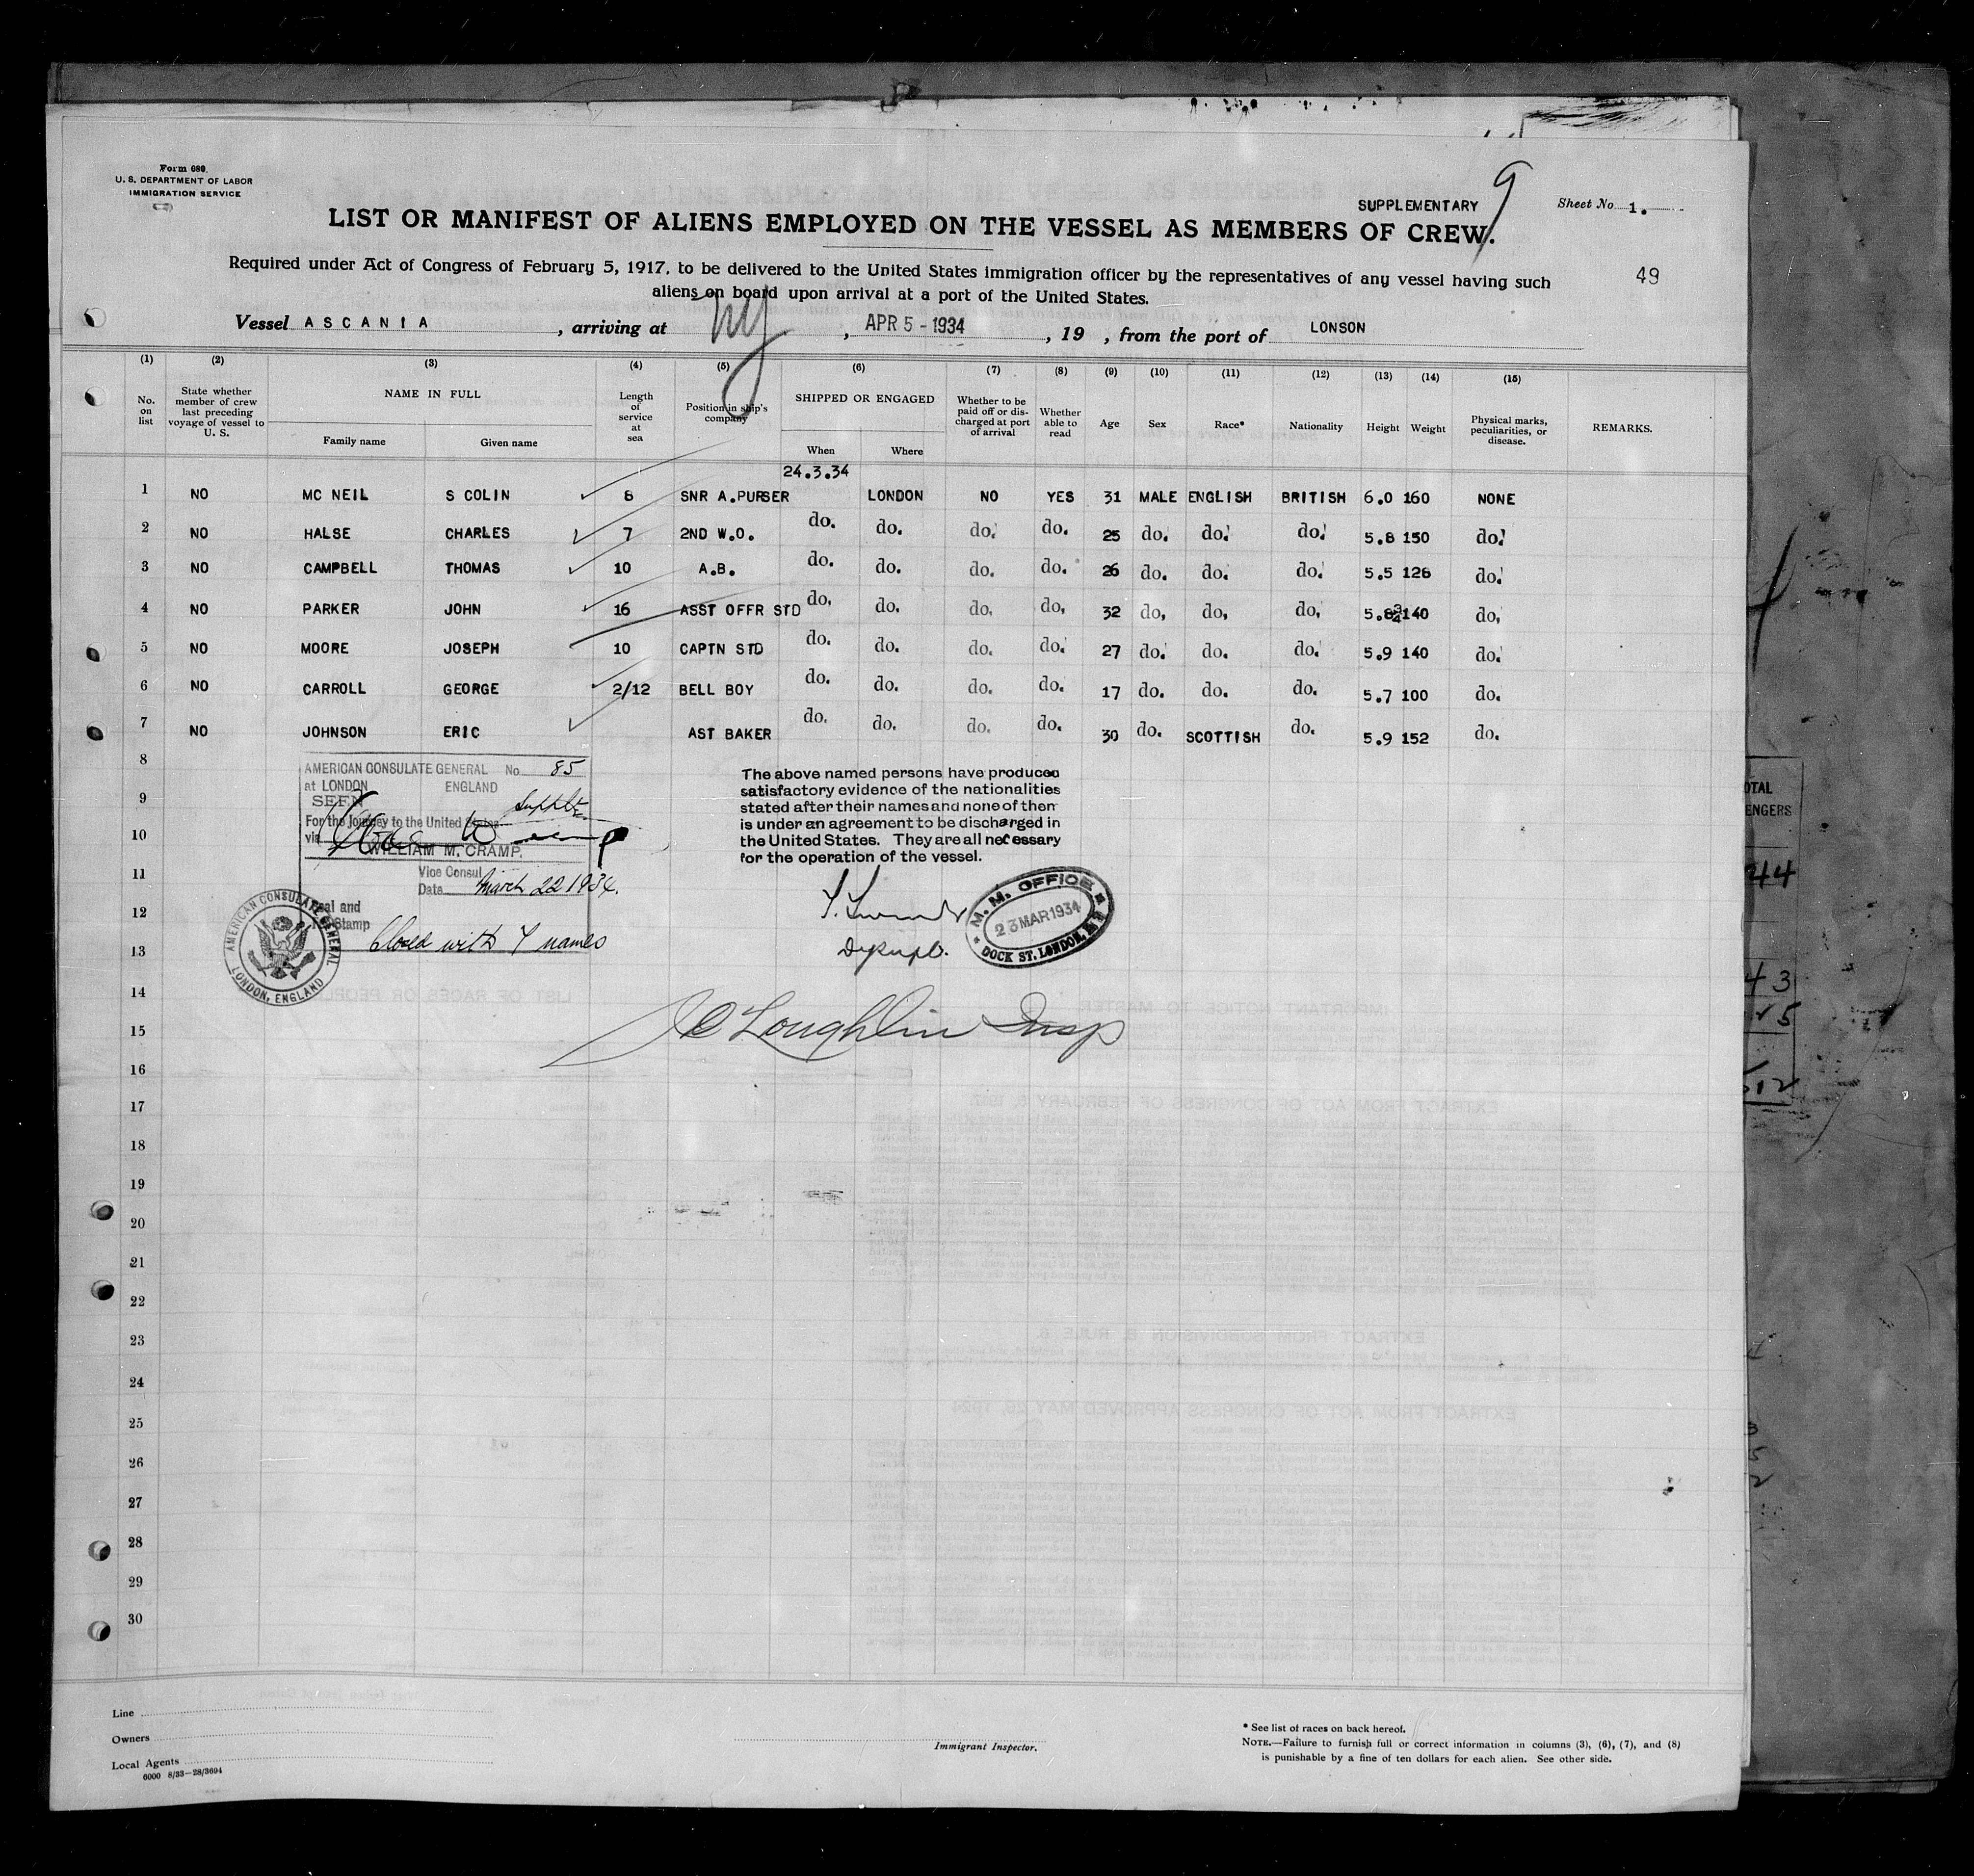 Form 680
U. S. DEPARTMENT OF LABOR
IMMIGRATION SERVICE
SUPPLEMENTARY
9
Sheet No. 1.
LIST OR MANIFEST OF ALIENS EMPLOYED ON THE VESSEL AS MEMBERS OF CREW.
Required under Act of Congress of February 5, 1917, to be delivered to the United States immigration officer by the representatives of any vessel having such
aliens on board upon arrival at a port of the United States.
49
Vessel ASCANIA, arriving at NY, APR 5 - 1934, 19 , from the port of LONSON
(1) (2) (3) (4) (5) (6) (7) (8) (9) (10) (11) (12) (13) (14) (15)
No. on list
State whether member of crew last preceding voyage of vessel to U. S.
NAME IN FULL
Family name
Given name
Length of service at sea
Position in ship's company
SHIPPED OR ENGAGED
When
Where
Whether to be paid off or discharged at port of arrival
Whether able to read
Age
Sex
Race*
Nationality
Height
Weight
Physical marks, peculiarities, or disease.
REMARKS.
24.3.34
1 NO MC NEIL S COLIN 8 SNR A.PURSER LONDON NO YES 31 MALE ENGLISH BRITISH 6.0 160 NONE
2 NO HALSE CHARLES 7 2ND W.O. do. do. do. do. 25 do. do. do. 5.8 150 do.
3 NO CAMPBELL THOMAS 10 A.B. do. do. do. do. 26 do. do. do. 5.5 126 do.
4 NO PARKER JOHN 16 ASST OFFR STD do. do. do. do. 32 do. do. do. 5.8¾ 140 do.
5 NO MOORE JOSEPH 10 CAPTN STD do. do. do. do. 27 do. do. do. 5.9 140 do.
6 NO CARROLL GEORGE 2/12 BELL BOY do. do. do. do. 17 do. do. do. 5.7 100 do.
7 NO JOHNSON ERIC AST BAKER do. do. do. do. 30 do. SCOTTISH do. 5.9 152 do.
8
9
10
11
12
13
14
15
16
17
18
19
20
21
22
23
24
25
26
27
28
29
30
AMERICAN CONSULATE GENERAL No. 85
at LONDON ENGLAND
SEEN
For the Journey to the United States
via
WILLIAM M. CRAMP.
Vice Consul
Date March 22 1934.
Seal and
Stamp
Closed with 7 names
AMERICAN CONSULATE GENERAL
LONDON, ENGLAND
The above named persons have produced
satisfactory evidence of the nationalities
stated after their names and none of then
is under an agreement to be discharged in
the United States. They are all necessary
for the operation of the vessel.
M. M. OFFICE
23 MAR 1934
DOCK ST. LONDON, E
Loughlin Insp
Line
Owners
Local Agents
6000 8/33—28/3694
Immigrant Inspector.
* See list of races on back hereof.
NOTE.—Failure to furnish full or correct information in columns (3), (6), (7), and (8)
is punishable by a fine of ten dollars for each alien. See other side.